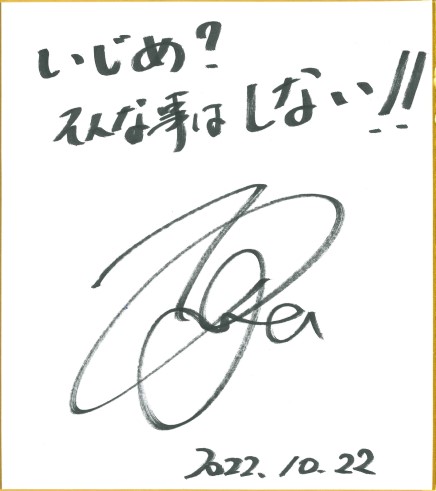 いじめ?
そんな事はしない!!
2022.10.22